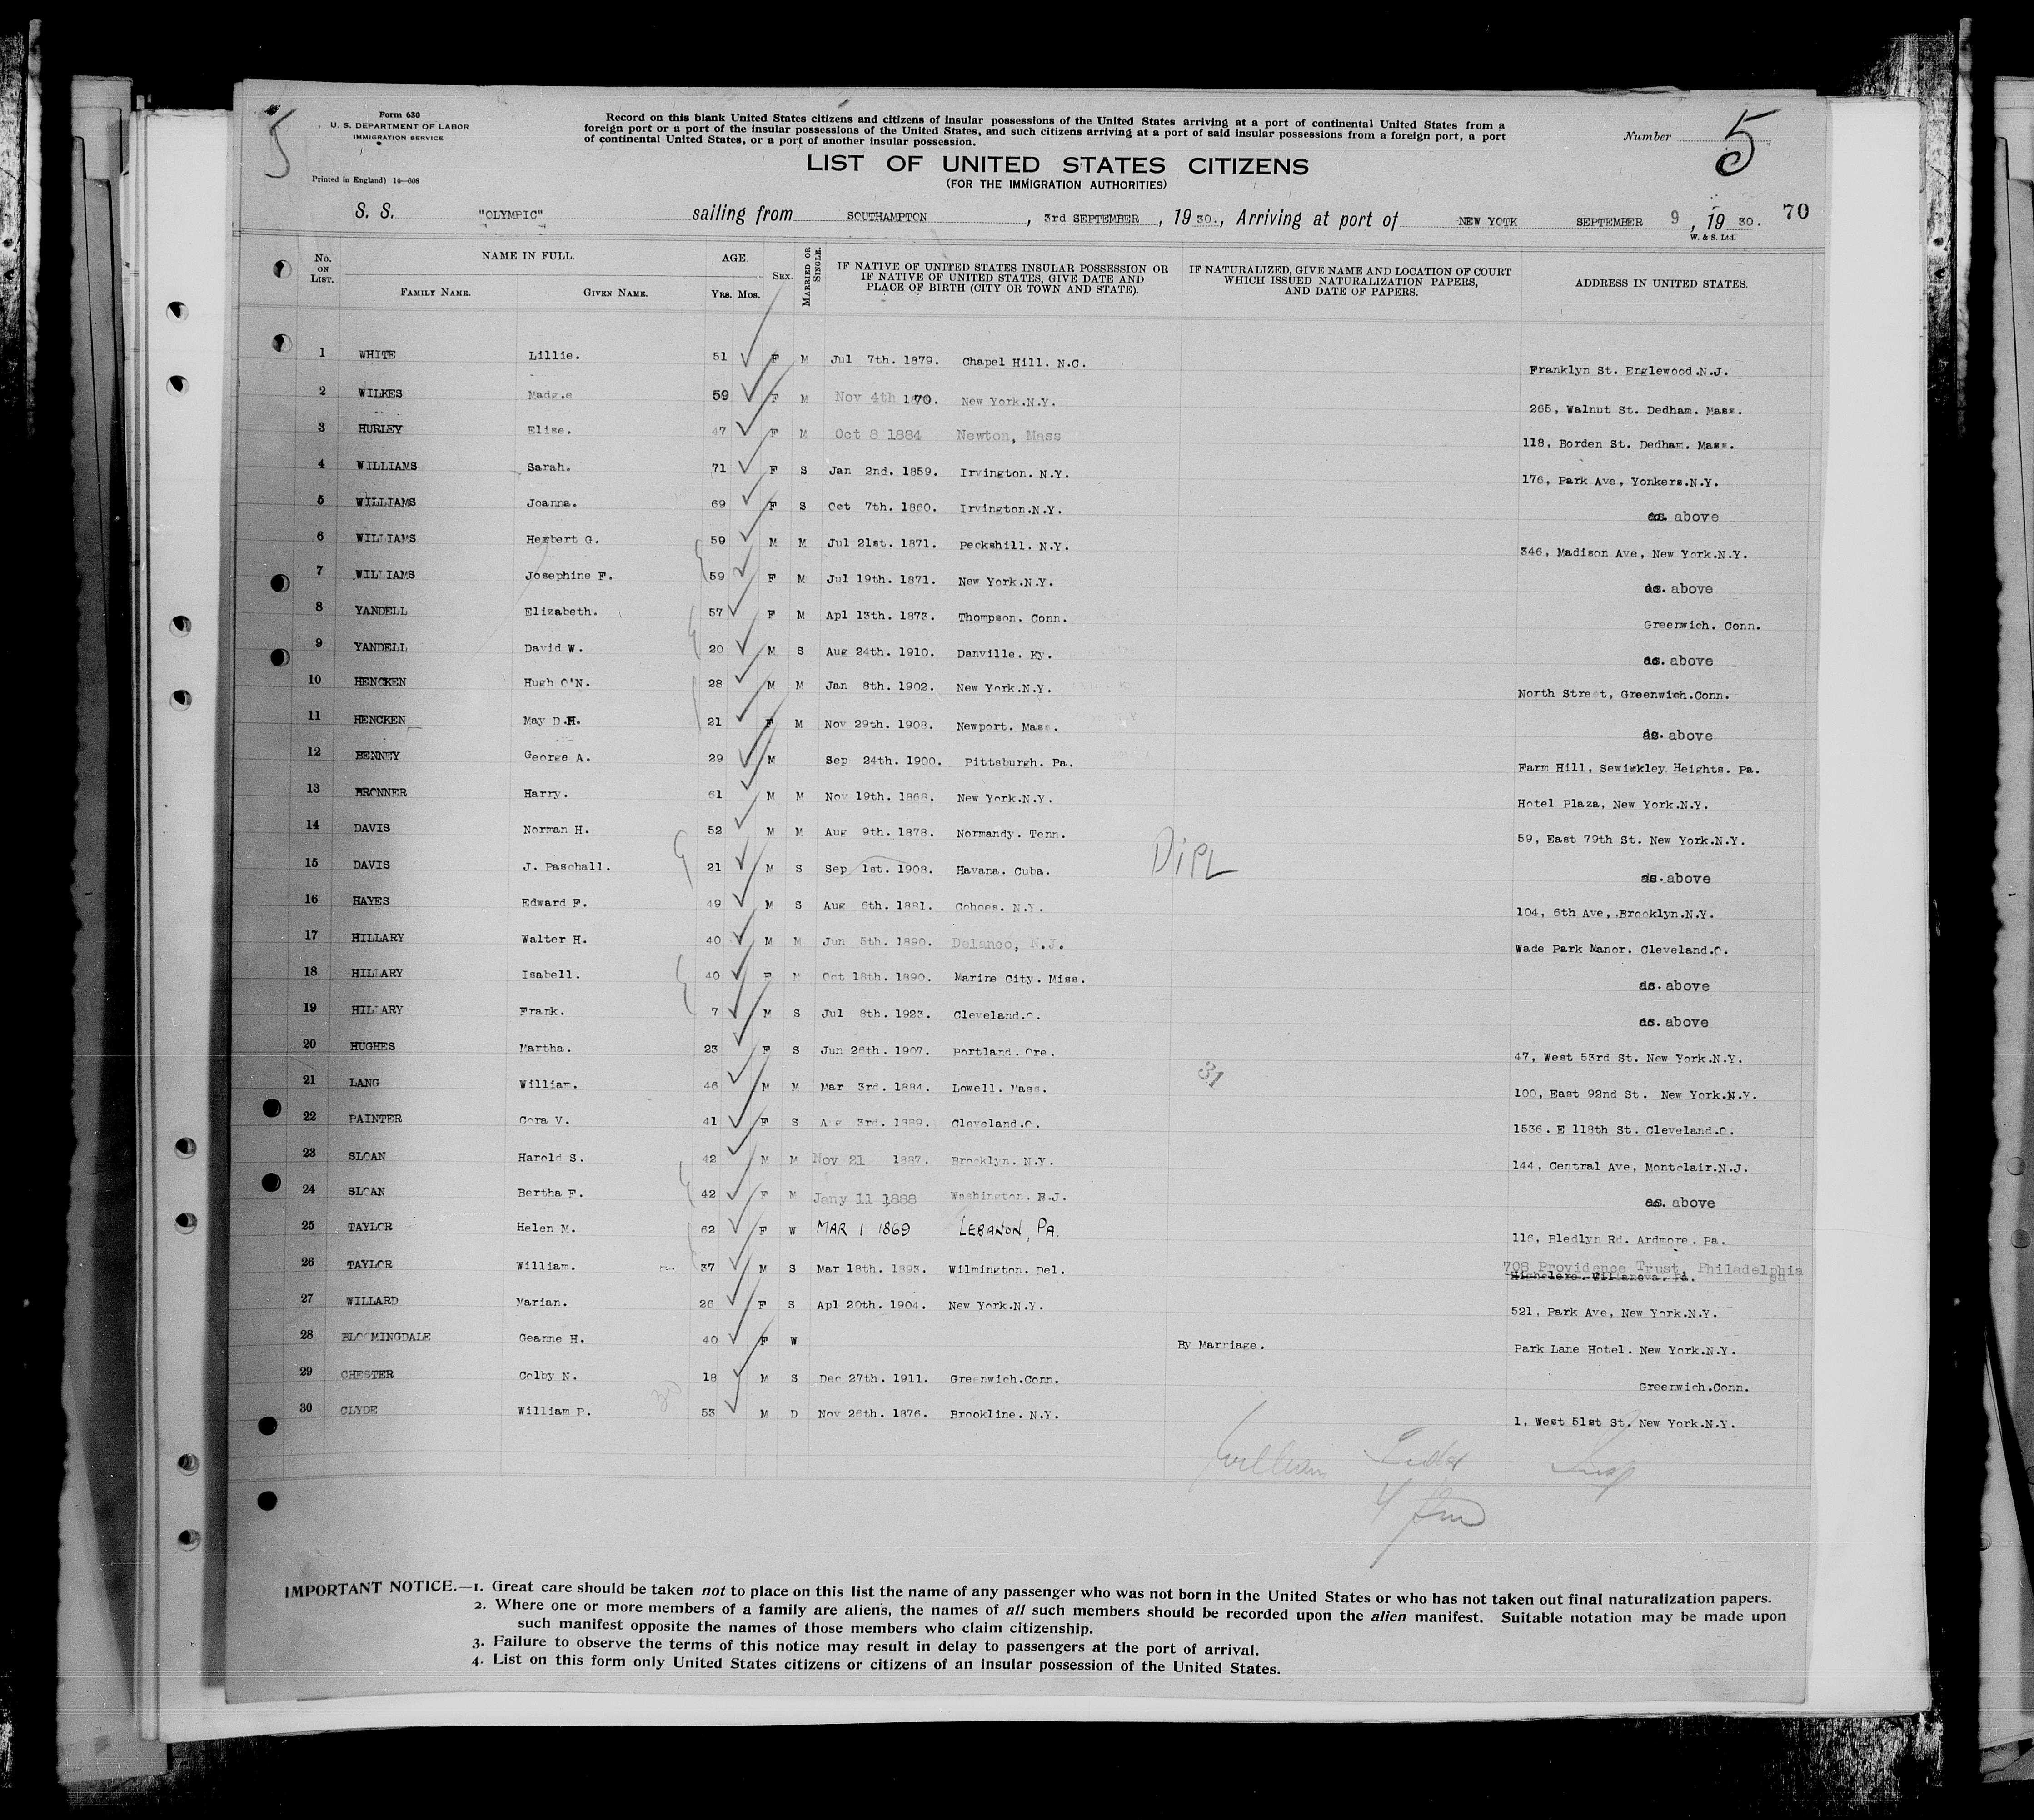 5
Form 630
U. S. DEPARTMENT OF LABOR
IMMIGRATION SERVICE
Printed in England) 14—608
Record on this blank United States citizens and citizens of insular possessions of the United States arriving at a port of continental United States from a
foreign port or a port of the insular possessions of the United States, and such citizens arriving at a port of said insular possessions from a foreign port, a port
of continental United States, or a port of another insular possession.
Number 5
LIST OF UNITED STATES CITIZENS
(FOR THE IMMIGRATION AUTHORITIES)
S. S. "OLYMPIC" sailing from SOUTHAMPTON, 3rd SEPTEMBER, 19 30., Arriving at port of NEW YOTK SEPTEMBER 9, 19 30. 70
W. & S. Ltd.
No. ON LIST. NAME IN FULL. AGE. SEX. MARRIED OR SINGLE. IF NATIVE OF UNITED STATES INSULAR POSSESSION OR IF NATIVE OF UNITED STATES, GIVE DATE AND PLACE OF BIRTH (CITY OR TOWN AND STATE). IF NATURALIZED, GIVE NAME AND LOCATION OF COURT WHICH ISSUED NATURALIZATION PAPERS, AND DATE OF PAPERS. ADDRESS IN UNITED STATES.
FAMILY NAME. GIVEN NAME. YRS. MOS.
1 WHITE Lillie. 51 F M Jul 7th. 1879. Chapel Hill. N.C. Franklyn St. Englewood.N.J.
2 WILKES Madg.e 59 F M Nov 4th 1870. New York.N.Y. 265, Walnut St. Dedham. Mass.
3 HURLEY Elise. 47 F M Oct 8 1884 Newton, Mass 118, Borden St. Dedham. Mass.
4 WILLIAMS Sarah. 71 F S Jan 2nd. 1859. Irvington. N.Y. 176, Park Ave, Yonkers.N.Y.
5 WILLIAMS Joanna. 69 F S Oct 7th. 1860. Irvington.N.Y. as. above
6 WILLIAMS Herbert G. 59 M M Jul 21st. 1871. Peckshill. N.Y. 346, Madison Ave, New York.N.Y.
7 WILLIAMS Josephine F. 59 F M Jul 19th. 1871. New York.N.Y. as. above
8 YANDELL Elizabeth. 57 F M Apl 13th. 1873. Thompson. Conn. Greenwich. Conn.
9 YANDELL David W. 20 M S Aug 24th. 1910. Danville. Ky. as. above
10 HENCKEN Hugh O'N. 28 M M Jan 8th. 1902. New York.N.Y. North Street, Greenwich.Conn.
11 HENCKEN May D.H. 21 F M Nov 29th. 1908. Newport. Mass. as. above
12 BENNEY George A. 29 M Sep 24th. 1900. Pittsburgh. Pa. Farm Hill, Sewickley Heights. Pa.
13 BRONNER Harry. 61 M M Nov 19th. 1868. New York.N.Y. Hotel Plaza, New York.N.Y.
14 DAVIS Norman H. 52 M M Aug 9th. 1878. Normandy. Tenn. 59, East 79th St. New York.N.Y.
15 DAVIS J. Paschall. 21 M S Sep 1st. 1908. Havana. Cuba. DIPL as. above
16 HAYES Edward F. 49 M S Aug 6th. 1881. Cohoes. N.Y. 104, 6th Ave, Brooklyn.N.Y.
17 HILLARY Walter H. 40 M M Jun 5th. 1890. Delanco, N.J. Wade Park Manor. Cleveland.O.
18 HILLARY Isabell. 40 F M Oct 18th. 1890. Marine City. Miss. as. above
19 HILLARY Frank. 7 M S Jul 8th. 1923. Cleveland.O. as. above
20 HUGHES Martha. 23 F S Jun 26th. 1907. Portland. Ore. 47, West 53rd St. New York.N.Y.
31
21 LANG William. 46 M M Mar 3rd. 1884. Lowell. Mass. 100, East 92nd St. New York.N.Y.
22 PAINTER Cora V. 41 F S Aug 3rd. 1889. Cleveland.O. 1536. E 118th St. Cleveland.O.
23 SLOAN Harold S. 42 M M Nov 21 1887. Brooklyn. N.Y. 144, Central Ave, Montclair.N.J.
24 SLOAN Bertha F. 42 F M Jany 11 1888 Washington. N.J. as. above
25 TAYLOR Helen M. 62 F W MAR 1 1869 LEBANON, PA. 116, Bledlyn Rd. Ardmore. Pa.
26 TAYLOR William. 37 M S Mar 18th. 1893. Wilmington. Del. 708 Providence Trust, Philadelphia Pa
27 WILLARD Marian. 26 F S Apl 20th. 1904. New York.N.Y. 521, Park Ave, New York.N.Y.
28 BLOOMINGDALE Geanne H. 40 F W By Marriage. Park Lane Hotel. New York.N.Y.
29 CHESTER Colby N. 18 M S Dec 27th. 1911. Greenwich.Conn. Greenwich.Conn.
30 CLYDE William P. 53 M D Nov 26th. 1876. Brookline. N.Y. 1, West 51st St. New York.N.Y.
William
IMPORTANT NOTICE.—1. Great care should be taken not to place on this list the name of any passenger who was not born in the United States or who has not taken out final naturalization papers.
2. Where one or more members of a family are aliens, the names of all such members should be recorded upon the alien manifest. Suitable notation may be made upon
such manifest opposite the names of those members who claim citizenship.
3. Failure to observe the terms of this notice may result in delay to passengers at the port of arrival.
4. List on this form only United States citizens or citizens of an insular possession of the United States.